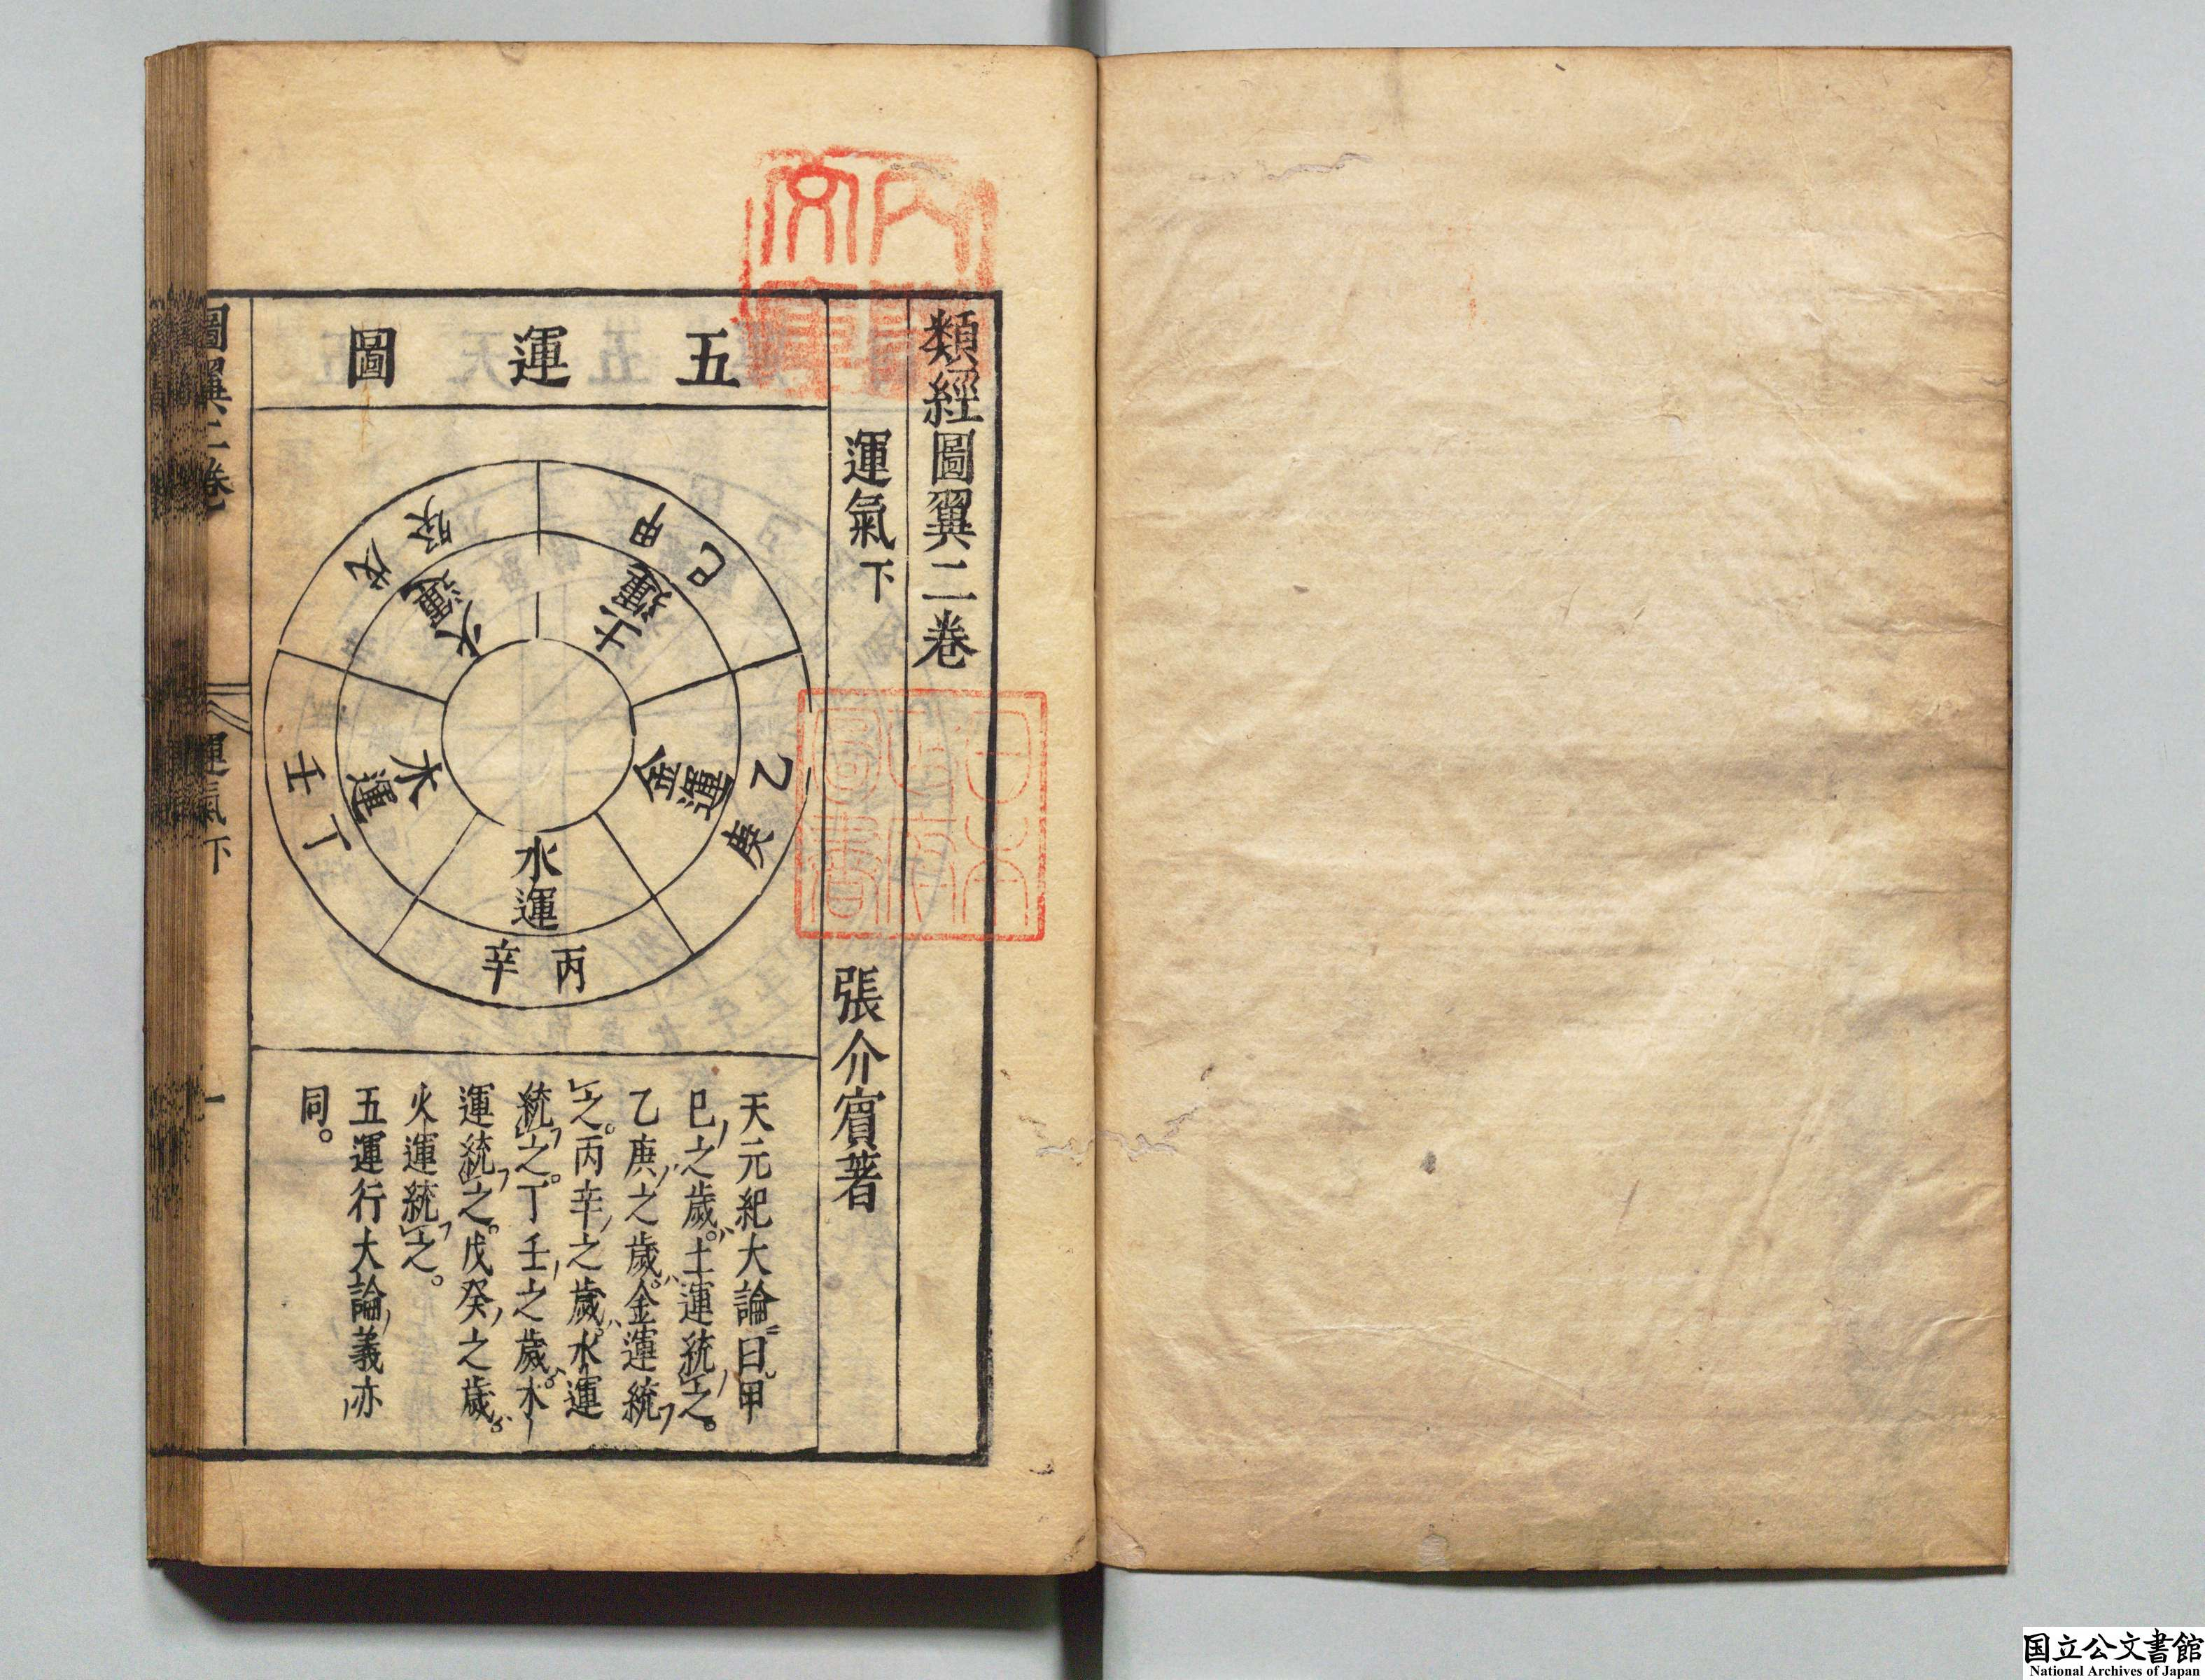 類經圖翼二卷
運氣下
張介賓著
五運圖
甲己
土運
乙庚
金運
丙辛
水運
丁壬
木運
戊癸
火運
天元紀大論曰甲
巳之歲。土運統之。
乙庚之歲。金運統
之。丙辛之歲。水運
統之。丁壬之歲。木
運統之。戊癸之歲
火運統之。
五運行大論義亦
同。
圖翼二卷
運氣下
一
内閣文庫
日本政府圖書
国立公文書館
National Archives of Japan